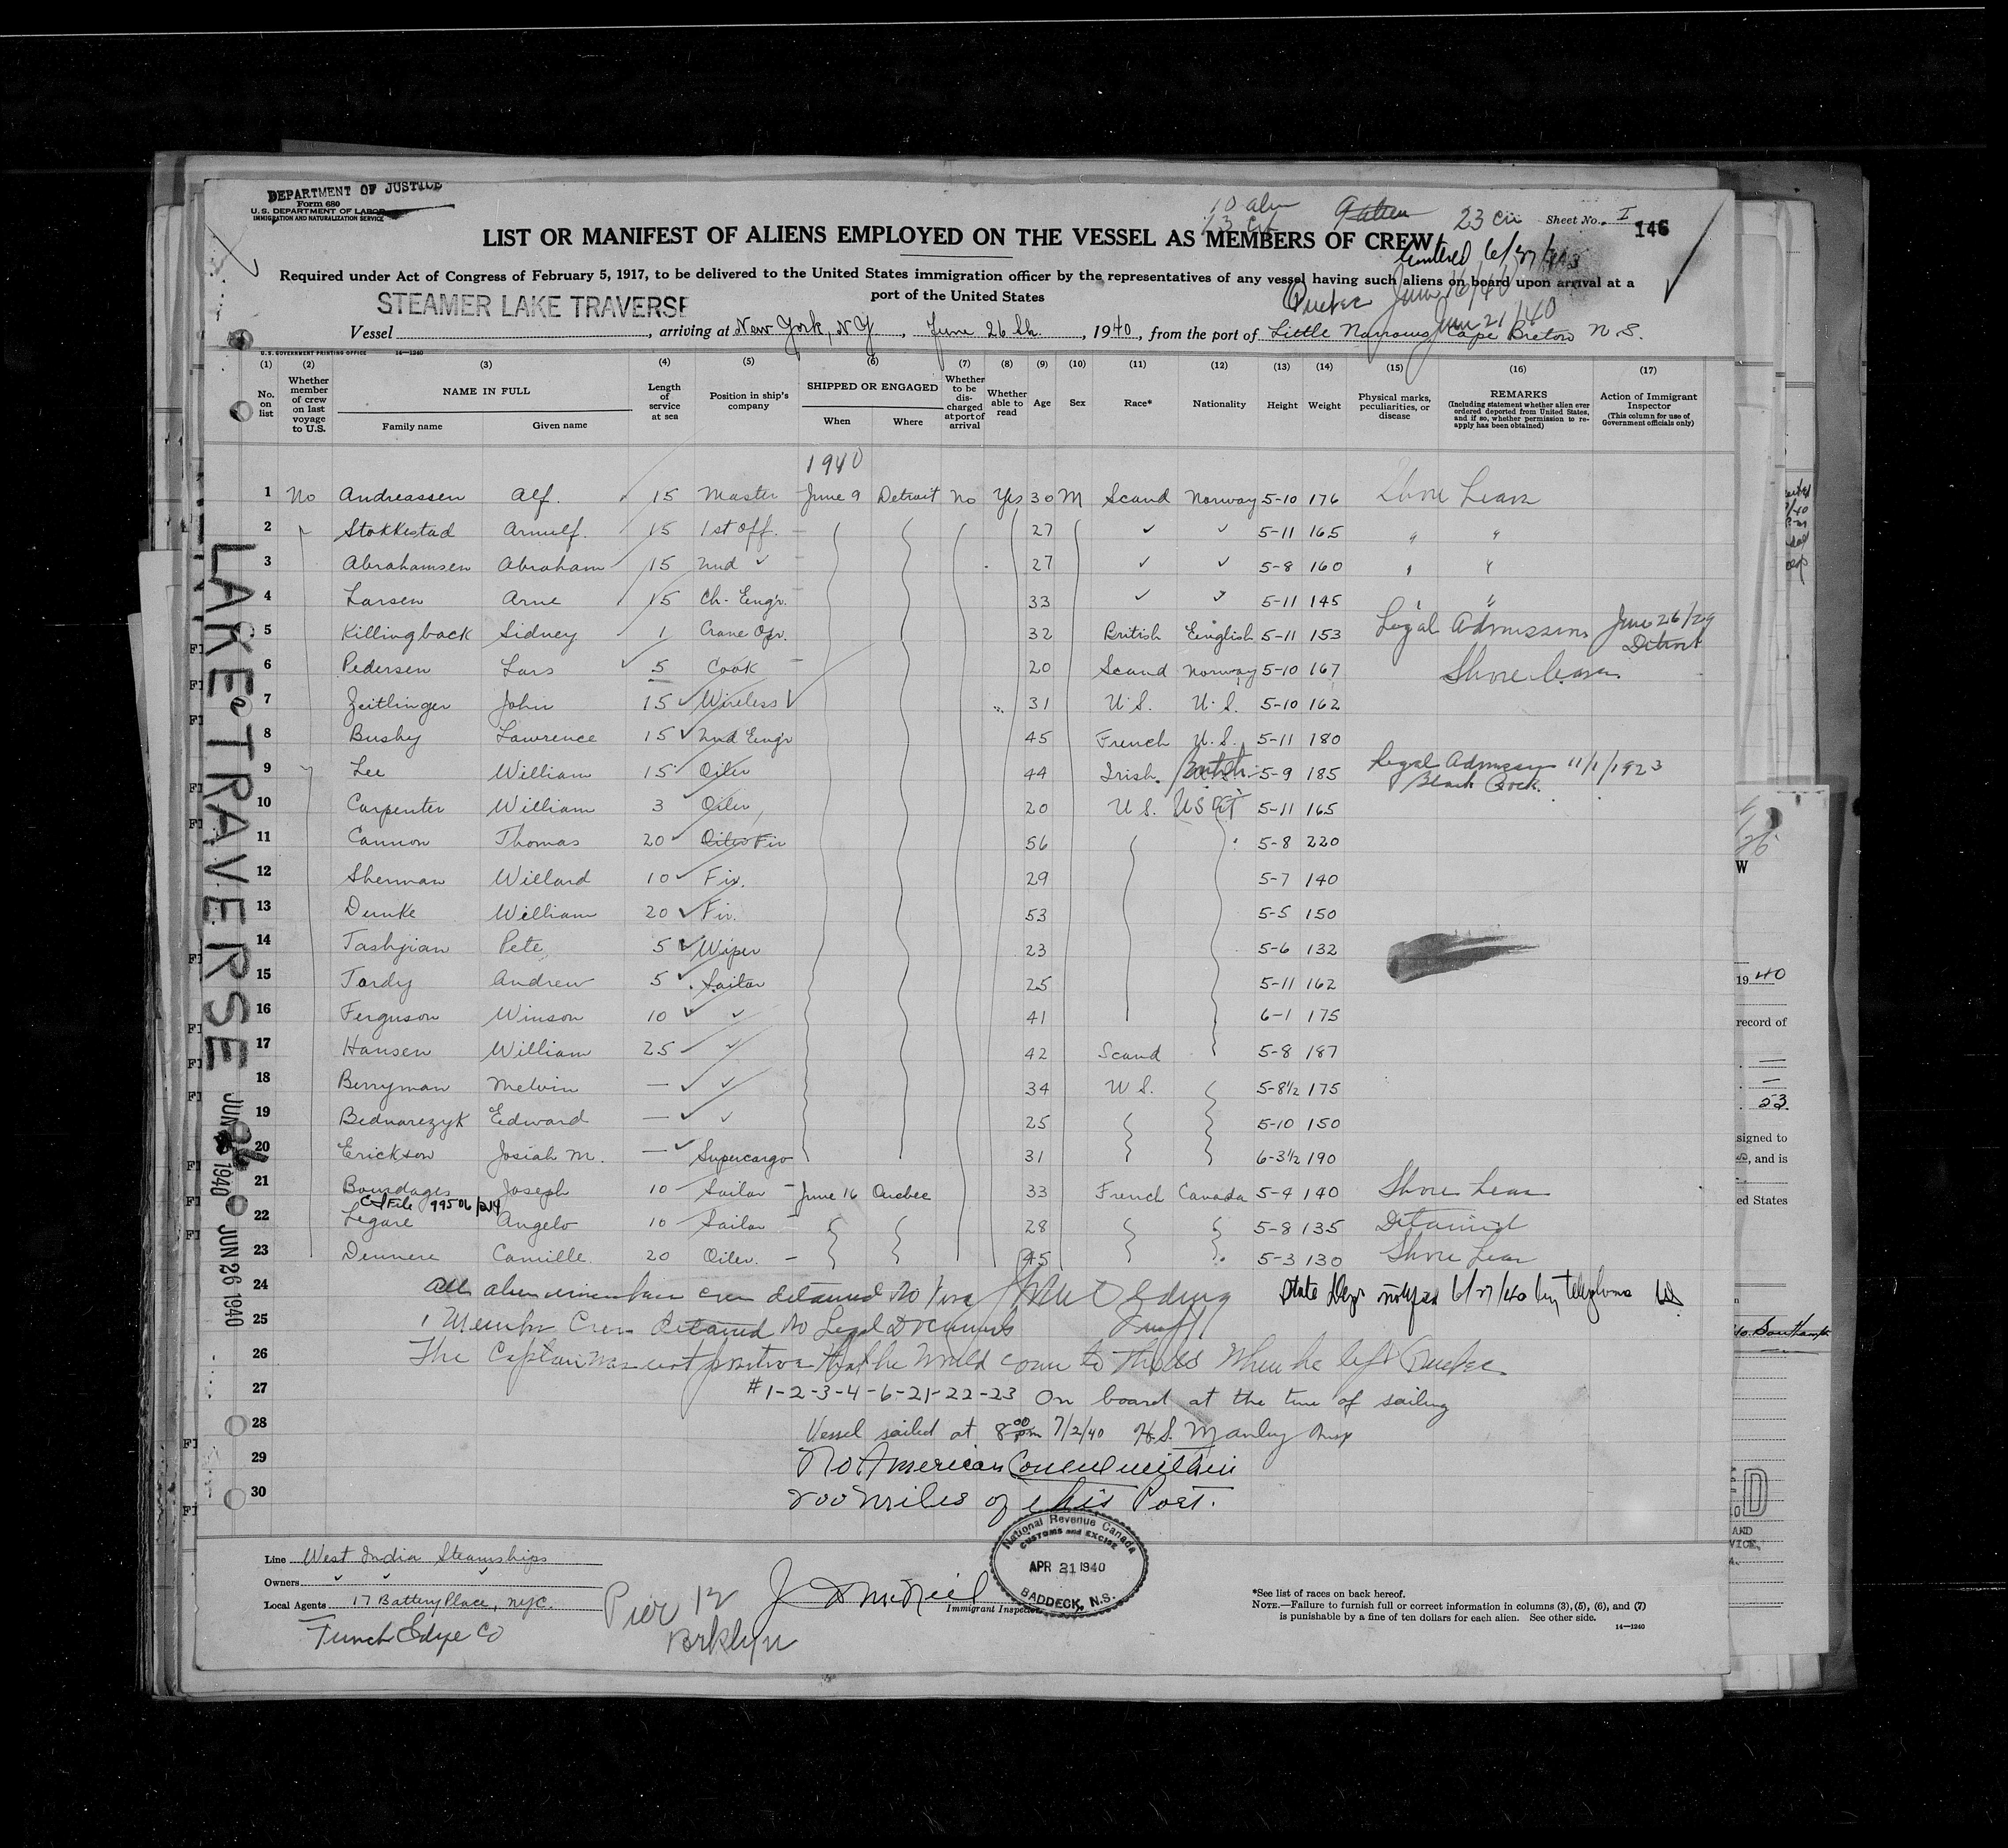 DEPARTMENT OF JUSTICE
Form 680
U.S. DEPARTMENT OF LABOR
IMMIGRATION AND NATURALIZATION SERVICE
10 alm
23 cu
Sheet No. I
146
LIST OR MANIFEST OF ALIENS EMPLOYED ON THE VESSEL AS MEMBERS OF CREW
Required under Act of Congress of February 5, 1917, to be delivered to the United States immigration officer by the representatives of any vessel having such aliens on board upon arrival at a
port of the United States
Quebec June 16/40
STEAMER LAKE TRAVERSE
Vessel , arriving at New York, N.Y , June 26th , 1940, from the port of Little Narrows Cape Breton N.S.
U.S. GOVERNMENT PRINTING OFFICE 14—1240
(1) (2) (3) (4) (5) (6) (7) (8) (9) (10) (11) (12) (13) (14) (15) (16) (17)
No. on list
Whether member of crew on last voyage to U.S.
NAME IN FULL
Family name Given name
Length of service at sea
Position in ship's company
SHIPPED OR ENGAGED
When Where
Whether to be discharged at port of arrival
Whether able to read
Age
Sex
Race*
Nationality
Height
Weight
Physical marks, peculiarities, or disease
REMARKS
(Including statement whether alien ever ordered deported from United States, and if so, whether permission to reapply has been obtained)
Action of Immigrant Inspector
(This column for use of Government officials only)
1940
1 No Andreassen Alf. 15 Master June 9 Detroit No Yes 30 M Scand Norway 5-10 176 Shore Leave
2 Stokkestad Arnulf. 15 1st Off. 27 ✓ ✓ 5-11 165 " "
3 Abrahamsen Abraham 15 2nd ✓ 27 ✓ ✓ 5-8 160 " "
4 Larsen Arne 15 Ch. Engr. 33 ✓ ✓ 5-11 145 " "
5 Killingback Sidney 1 Crane Opr. 32 British English 5-11 153 Legal Admission June 26/29 Detroit
6 Pedersen Lars 5 Cook 20 Scand Norway 5-10 167 Shore leave
7 Zeitlinger John 15 Wireless 31 U.S. U.S. 5-10 162
8 Busby Lawrence 15 2nd Engr 45 French U.S. 5-11 180
9 Lee William 15 Oiler 44 Irish. 5-9 185 Legal Admission 11/1/1923 Black Rock.
10 Carpenter William 3 Oiler 20 U.S. US Cit 5-11 165
11 Cannon Thomas 20 Oiler Fir 56 5-8 220
12 Sherman Willard 10 Fir. 29 5-7 140
13 Demke William 20 Fir. 53 5-5 150
14 Tashjian Pete 5 Wiper 23 5-6 132
15 Tardy Andrew 5 Sailor 25 5-11 162
16 Ferguson Winson 10 ✓ 41 6-1 175
17 Hansen William 25 ✓ 42 Scand 5-8 187
18 Berryman Melvin — ✓ 34 U.S. 5-8½ 175
19 Bednarczyk Edward — ✓ 25 5-10 150
20 Erickson Josiah M. — Supercargo 31 6-3½ 190
21 Bourdages Joseph 10 Sailor June 16 Quebec 33 French Canada 5-4 140 Shore Leave
22 Legare Angelo 10 Sailor 28 5-8 135 Detained
23 Dennere Camille. 20 Oiler. 45 5-3 130 Shore Leave
24 All alien members crew detained No Visa State Dept notified 6/27/40 by telephone
25 1 Member Crew detained No Legal Documents
26 The Captain was not positive that he would come to the US When he left Quebec
27 #1-2-3-4-6-21-22-23 On board at the time of sailing
28 Vessel sailed at 8 00 pm 7/2/40 H.S. Manley Insp
29 No American Consul within
30 200 miles of this Port.
LAKE TRAVERSE
JUN 26 1940
JUN 26 1940
Line West India Steamships
Owners ✓ ✓ ✓
Local Agents 17 Battery Place, NYC.
Funch Edye Co
Pier 12
Brklyn
J D McNeil
Immigrant Inspector
National Revenue Canada
CUSTOMS and EXCISE
APR 21 1940
BADDECK, N.S.
*See list of races on back hereof.
NOTE.—Failure to furnish full or correct information in columns (3), (5), (6), and (7)
is punishable by a fine of ten dollars for each alien. See other side.
14—1240
W
1940
record of
53
signed to
, and is
ed States